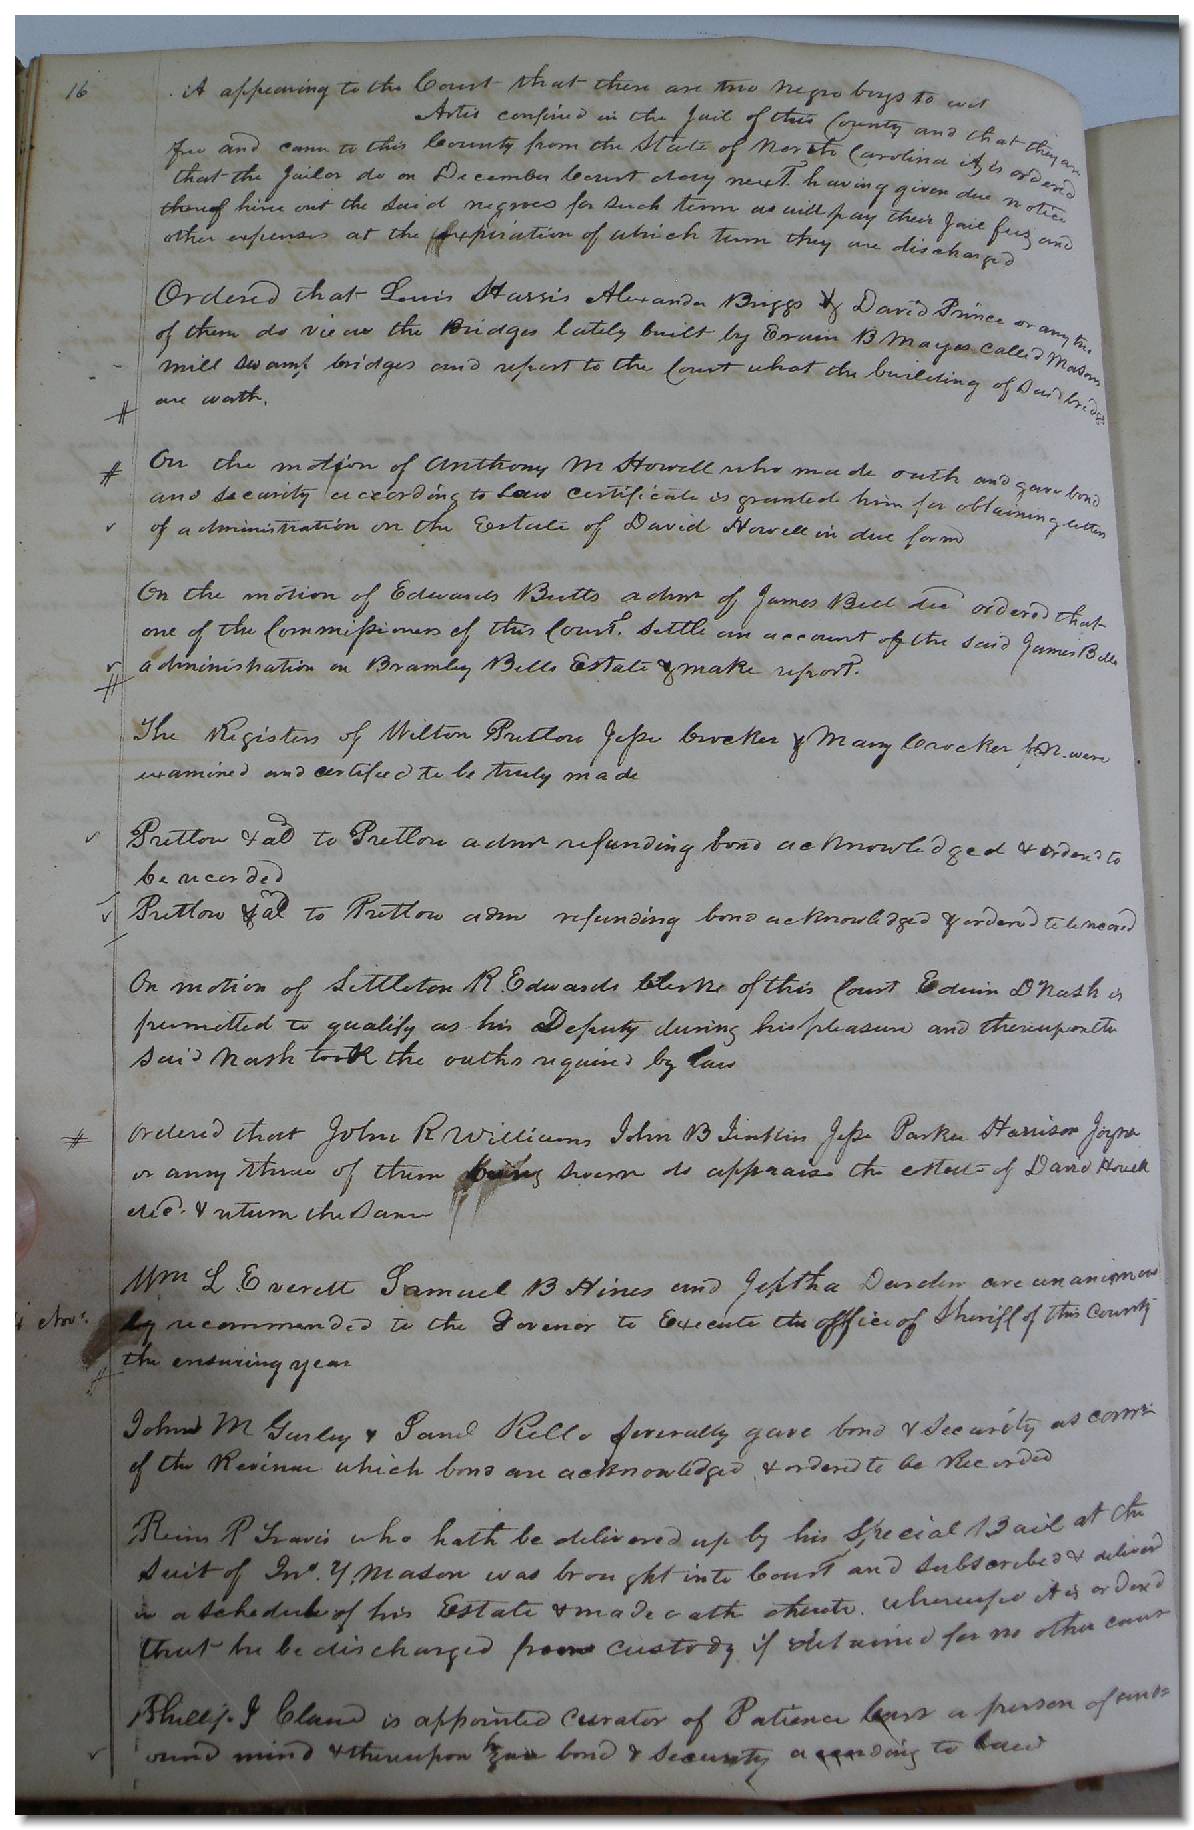 16
it appearing to the Court that there are two negro boys to wit
Artis confined in the Jail of this County and that they are
free and came to this County from the State of North Carolina it is ordered
that the Jailor do on December Court day next having given due notice
thereof hire out the said negroes for such term as will pay their Jail fees and
other expenses at the expiration of which term they are discharged
Ordered that Lewis Harris Alexander Briggs & David Prince or any two
of them do view the Bridges lately built by B Mayes called Masons
mill swamp bridges and report to the Court what the building of Said bridges
are worth.
#
# On the motion of Anthony M Howell who made oath and gave bond
and security according to Law certificate is granted him for obtaining letters
of administration on the Estate of David Howell in due form
On the motion of Edwards Butts admr of James Bell decd ordered that
one of the Commissioners of this Court. settle an account of the said James Bells
administration on Bramley Bells Estate & make report.
#
The Registers of Wilton Pretlow Jesse Crocker & Mary Crocker f.n. were
examined and certified to be truly made
Pretlow & al to Pretlow admr refunding bond acknowledged & ordered to
be recorded
Pretlow & al to Pretlow adm refunding bond acknowledged & ordered to be recored
On motion of Littleton R Edwards Clerke of this Court Edwin D Nash is
permitted to qualify as his Deputy during his pleasure and thereupon the
said Nash took the oaths required by law
# ordered that John R Williams John B Jinkins Jesse Parker Harrison Joyner
or any three of them being sworn do appraise the estate of David Howell
decd. & return the same
Wm L Everett Samuel B Hines and Jeptha Darden are unanimous
ly recommended to the Govenor to Execute the office of Sheriff of this County
Nov:
the ensuring year
#
John M Gurley & Saml Kello severally gave bond & security as comr
of the Revinue which bond are acknowledged & ordered to be Recorded
P Travis who hath be delivered up by his Special Bail at the
suit of Jno. Y. Mason was brought into Court and subscribed & deliverd
in a schedule of his Estate & made oath thereto. whereupo it is ordered
that he be discharged from custody if detained for no other cause
Phillip J Claud is appointed curator of Patience a person of uns
ound mind & thereupon gave bond & security according to law